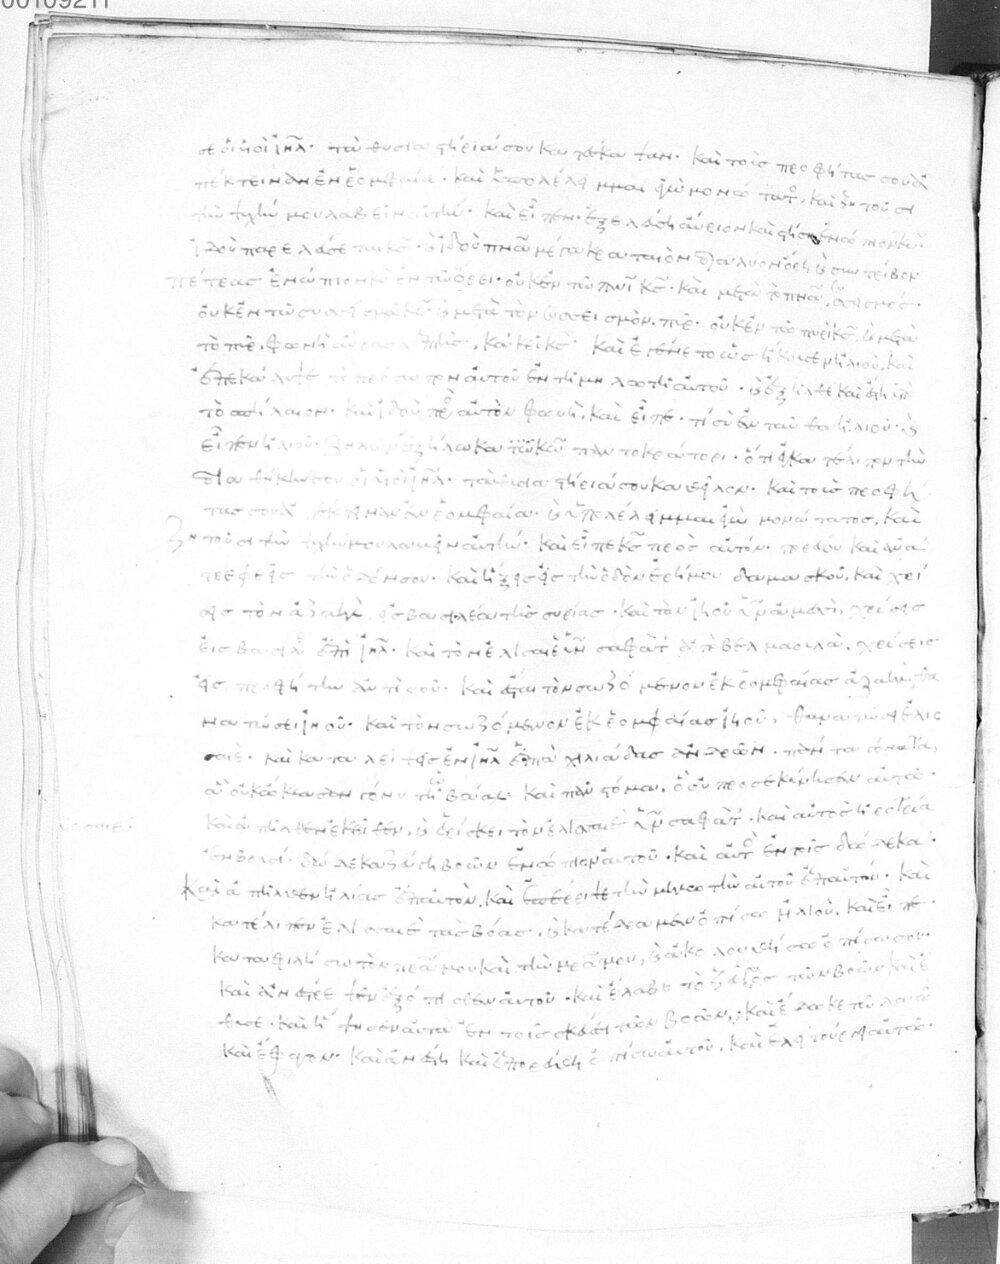 00109211
σε οἱ υἱοὶ ἰηλ. τὰ θυσιαστήριά σου κατέσκαψαν. καὶ τοὺς προφήτας σου ἀ
πέκτειναν ἐν ῥομφαία. καὶ ὑπολέλειμμαι ἐγὼ μονώτατος, καὶ ζητοῦσι
τὴν ψυχήν μου λαβεῖν αὐτήν. καὶ εἶπεν. ἐξελεύση αὔριον καὶ στήση ἐνώπιον κυ.
ἰδοὺ παρελεύσεται κς. καὶ ἰδοὺ πνα μέγα κραταιὸν διαλύον ὄρη καὶ συντρίβον
πέτρας ἐνώπιον κυ ἐν τῶ ὄρει. οὐκ ἐν τῶ πνι κς. καὶ μετὰ τὸ πνα, συσσεισμός.
οὐκ ἐν τῶ συσσεισμῶ κς. καὶ μετὰ τὸν συσσεισμὸν, πῦρ. οὐκ ἐν τῶ πυρὶ κς, καὶ μετὰ
τὸ πῦρ, φωνὴ αὔρας λεπτῆς, κἀκεῖ κς. καὶ ἐγένετο ὡς ἤκουσεν ἠλιοὺ, καὶ
ἐπεκάλυψε τὸ πρόσωπον αὐτοῦ ἐν τῆ μηλωτῆ αὐτοῦ. καὶ ἐξῆλθε καὶ ἔστη ὑπὸ
τὸ σπήλαιον. καὶ ἰδοὺ πρὸς αὐτὸν φωνὴ, καὶ εἶπε. τί σὺ ἐνταῦθα ἠλιού. καὶ
εἶπεν ἠλιού. ζηλῶν ἐζήλωκα τῶ κω παντοκράτορι. ὅτι ἐγκατέλιπον τὴν
διαθήκην σου οἱ υἱοὶ ἰηλ. τὰ θυσιαστήριά σου καθεῖλον. καὶ τοὺς προφή
τας σου ἀπέκτειναν ἐν ῥομφαία. καὶ ὑπολέλειμμαι ἐγὼ μονώτατος, καὶ
ζητοῦσι τὴν ψυχήν μου λαβεῖν αὐτήν. καὶ εἶπε κς πρὸς αὐτόν. πορεύου καὶ ἀνά
στρεφε εἰς τὴν ὁδόν σου. καὶ ἥξεις εἰς τὴν ὁδὸν ἐρήμου δαμασκοῦ, καὶ χρί
σεις τὸν ἀζαὴλ, εἰς βασιλέα τῆς συρίας. καὶ τὸν ἰηοῦ υἱὸν ἀμεσσὶ, χρίσεις
εἰς βασιλέα ἐπὶ ἰηλ. καὶ τὸν ἐλισαιὲ υἱὸν σαφὰτ ἀπὸ βελμαουλὰ, χρίσεις
εἰς προφήτην ἀντὶ σοῦ. καὶ ἔσται τὸν σωζόμενον ἐκ ῥομφαίας ἀζαὴλ, θα
νατώσει ἰηοῦ. καὶ τὸν σωζόμενον ἐκ ῥομφαίας ἰηοῦ, θανατώσει ἐλισ
σαιέ. καὶ καταλείψεις ἐν ἰηλ ἑπτὰ χιλιάδας ἀνδρῶν. πάντα γόνατα,
ἃ οὐκ ὤκλασαν γόνυ τῆ βάαλ. καὶ πᾶν στόμα, ὃ οὐ προσεκύνησεν αὐτῶ.
καὶ ἀπῆλθεν ἐκεῖθεν, καὶ εὑρίσκει τὸν ἐλισσαιὲ υἱὸν σαφάτ. καὶ αὐτὸς ἠροτρία
ἐν βουσί. δώδεκα ζεύγη βοῶν ἐνώπιον αὐτοῦ. καὶ αὐτὸς ἐν τοῖς δώδεκα.
καὶ ἀπῆλθεν ἠλίας ἐπ' αὐτὸν, καὶ ἐπέριψε τὴν μηλωτὴν αὐτοῦ ἐπ' αὐτόν. καὶ
κατέλιπεν ἐλισσαιὲ τὰς βόας, καὶ κατέδραμεν ὀπίσω ἠλιού. καὶ εἶπε.
καταφιλήσω τὸν πρα μου καὶ τὴν μρα μου, καὶ ἀκολουθήσω ὀπίσω σου.
καὶ ἀνέστρεψεν ἐξόπισθεν αὐτοῦ. καὶ ἔλαβε τὸ ζεῦγος τῶν βοῶν καὶ ἔ
θυσε. καὶ ἥψησεν αὐτὰ ἐν τοῖς σκεύεσι τῶν βοῶν. καὶ ἔδωκε τῶ λαῶ
καὶ ἔφαγον. καὶ ἀνέστη καὶ ἐπορεύθη ὀπίσω αὐτοῦ. καὶ ἐλειτούργει αὐτῶ.